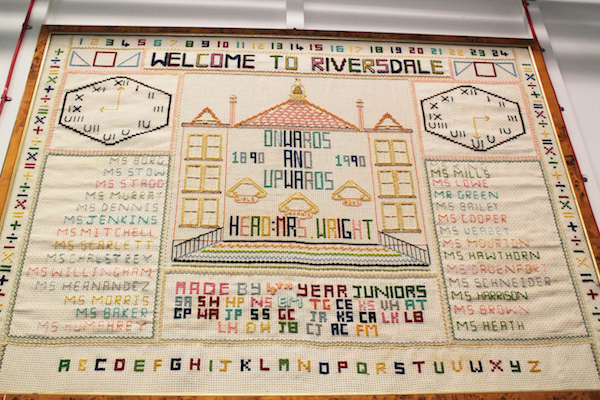 1 2 3 4 5 6 7 8 9 10 11 12 13 14 15 16 17 18 19 20 21 22 23 24
WELCOME TO RIVERSDALE
ONWARDS
1890 AND 1990
UPWARDS
HEAD: MRS. WRIGHT
MS BORG
MS STOW
MS STAGG
MS MURRAY
MS DENNIS
MS JENKINS
MS MITCHELL
MS SCARLETT
MS CHALSTREY
MS WILLINGHAM
MS HERNANDEZ
MS MORRIS
MS BAKER
MS HUMPHREY
MS MILLS
MS LOWE
MR GREEN
MS BAILEY
MS COOPER
MS HOURTON
MS HAWTHORN
MS DAVENPORT
MS SCHNEIDER
MS HARRISON
MS BROWN
MS HEATH
MADE BY 4TH YEAR JUNIORS
SA SH HP NS BM TG CE KS VH AT
GP WA JP SS GC JA KS CA LK LB
LH DH JB CJ AC FM
A B C D E F G H I J K L M N O P Q R S T U V W X Y Z